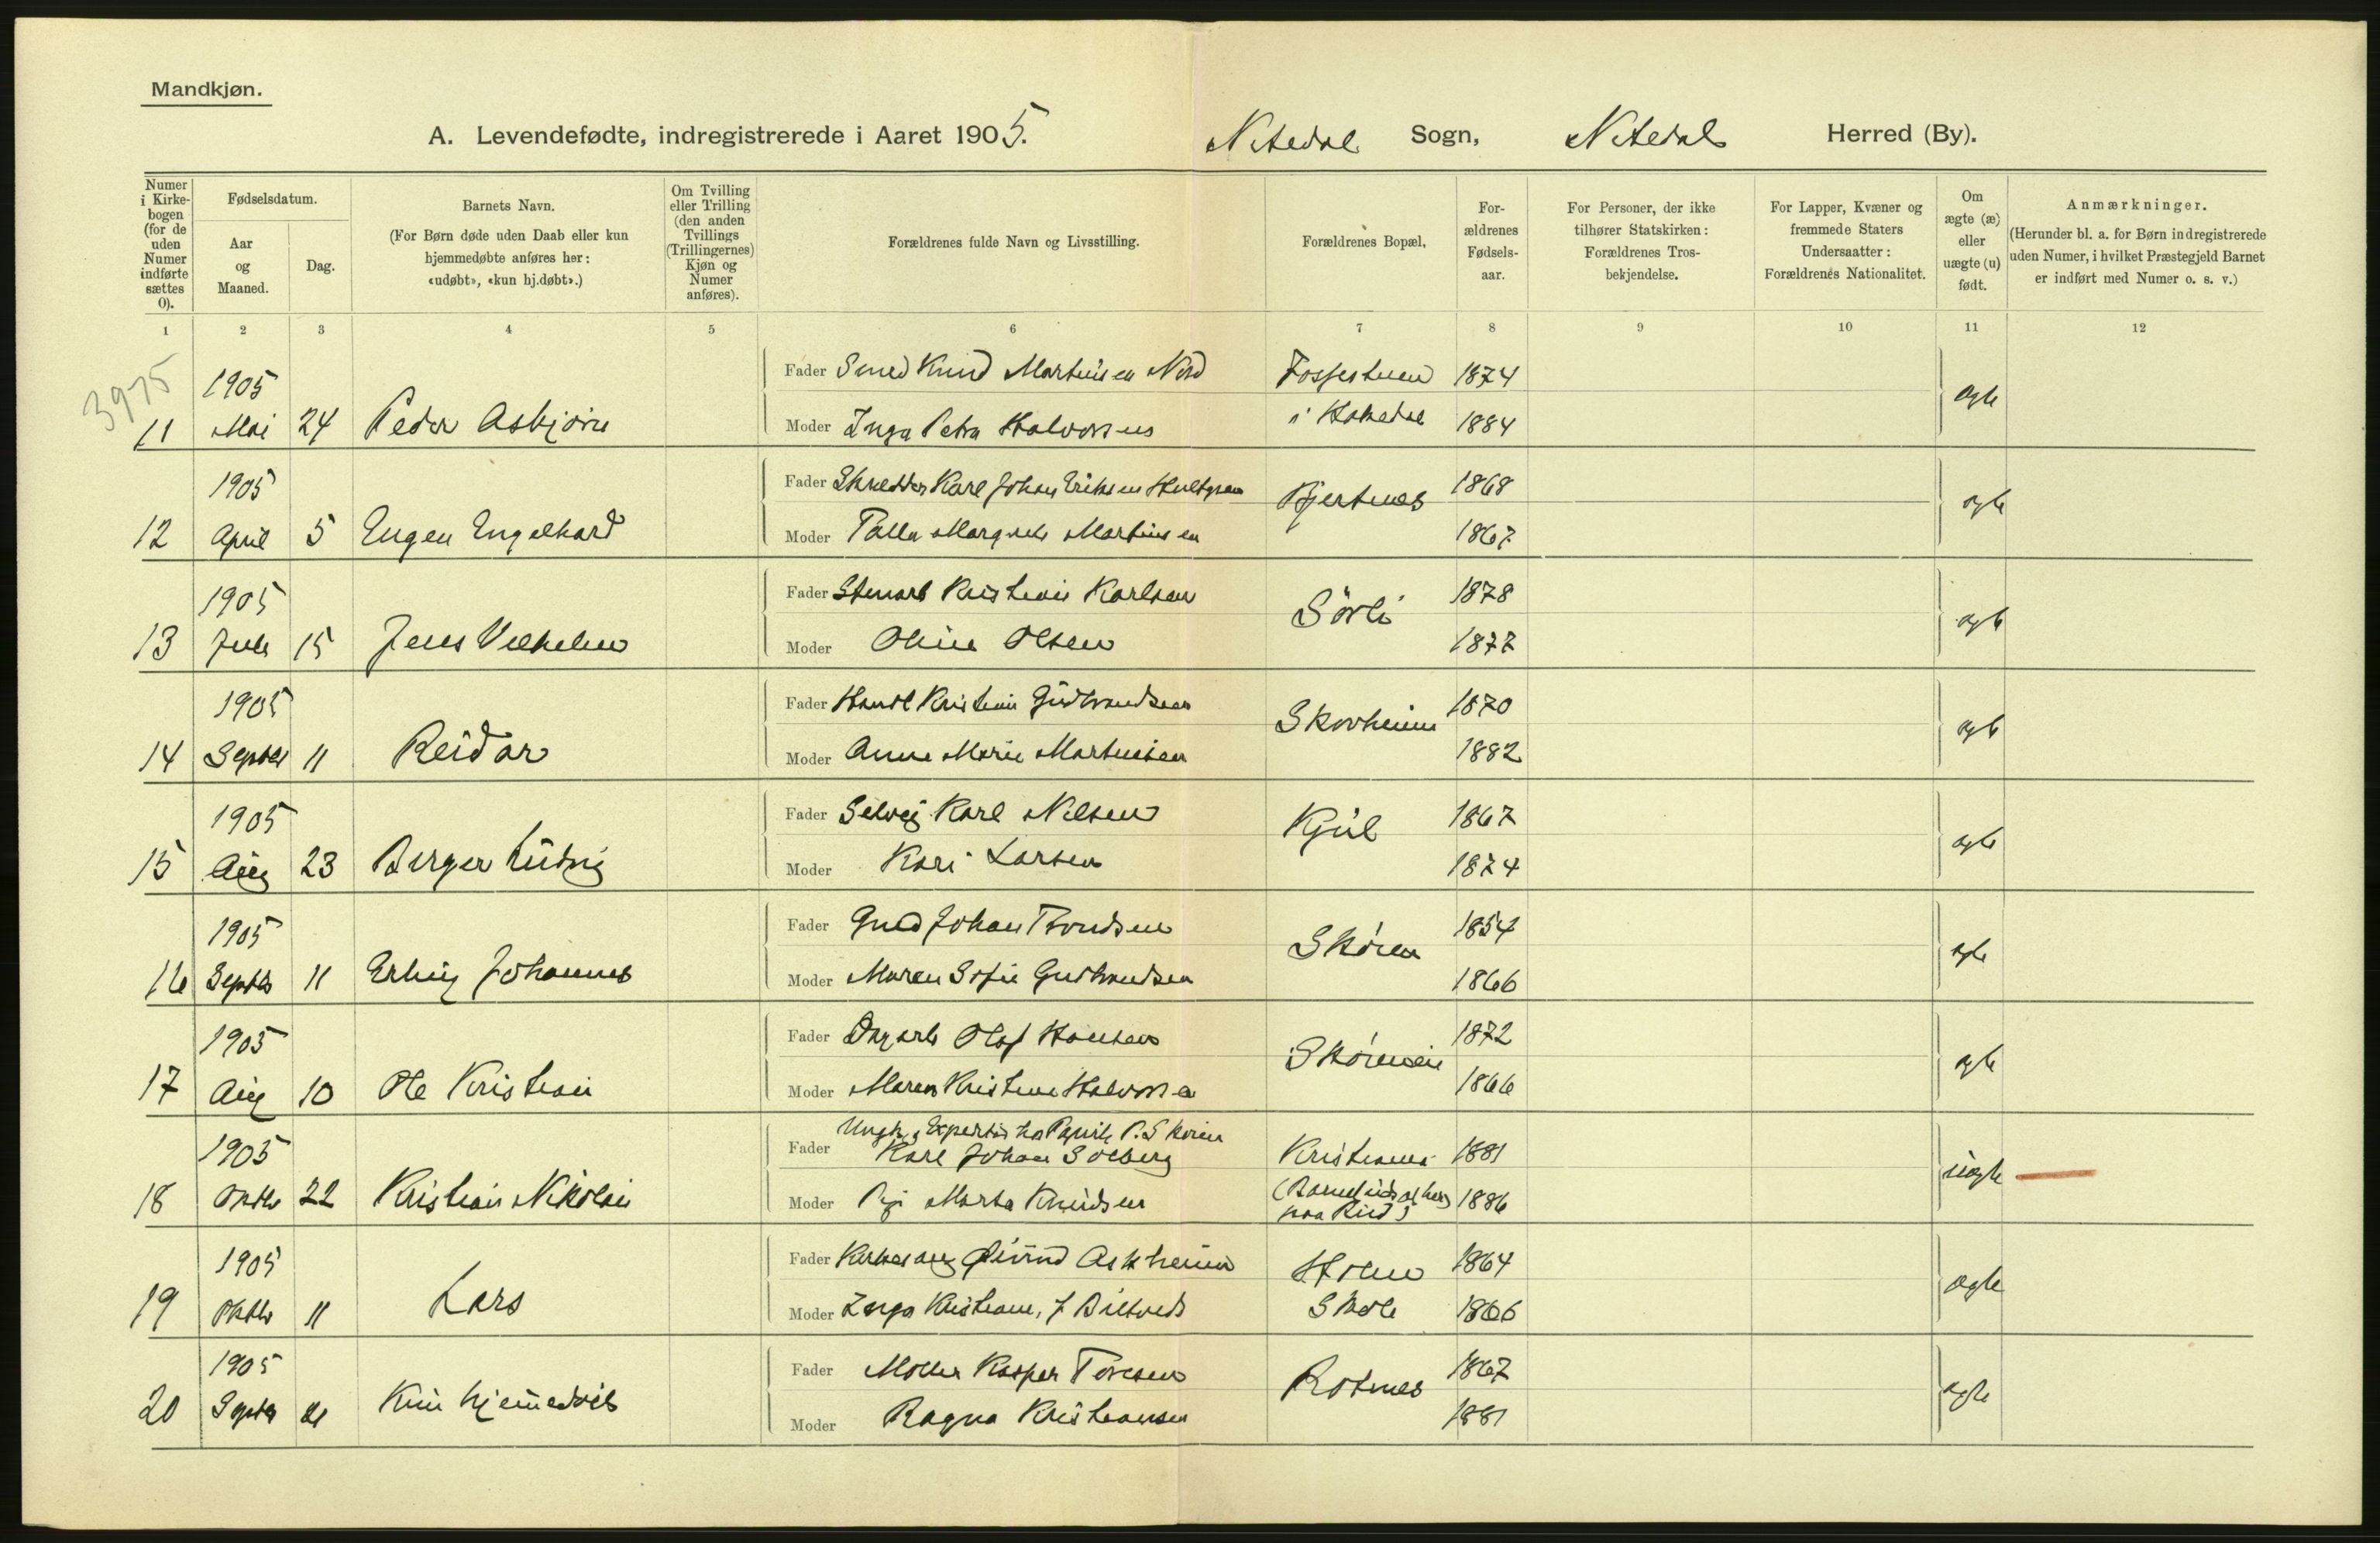 Mandkjøn.
A. Levendefødte, indregistrerede i Aaret 1905. Nitedal Sogn, Nitedal Herred (By).
Numer i Kirkebogen (for de uden Numer indførte sættes 0).
Fødselsdatum.
Aar og Maaned.
Dag.
Barnets Navn.
(For Børn døde uden Daab eller kun hjemmedøbte anføres her: «udøbt», «kun hj.døbt».)
Om Tvilling eller Trilling (den anden Tvillings (Trillingernes) Kjøn og Numer anføres).
Forældrenes fulde Navn og Livsstilling.
Forældrenes Bopæl,
Forældrenes Fødselsaar.
For Personer, der ikke tilhører Statskirken: Forældrenes Trosbekjendelse.
For Lapper, Kvæner og fremmede Staters Undersaatter: Forældrenes Nationalitet.
Om ægte (æ) eller uægte (u) født.
Anmærkninger.
(Herunder bl. a. for Børn indregistrerede uden Numer, i hvilket Præstegjeld Barnet er indført med Numer o. s. v.)
1 2 3 4 5 6 7 8 9 10 11 12
3975
1905 Fader Smed Knud Martinsen Nord Fossestuen 1874 ægte
11 Mai 24 Peder Asbjörn Moder Inga Petra Halvorsen i Hakedal 1884
1905 Fader Skredder Karl Johan Eriksen Hultgren Bjertnes 1868 ægte
12 April 5 Eugen Engelhard Moder Palla Margrete Martinsen 1867
1905 Fader Stenarb Kristian Karlsen Sörli 1878 ægte
13 Juli 15 Jens Vilhelm Moder Oline Olsen 1877
1905 Fader Handl Kristian Gudbrandsen Skovheim 1870 ægte
14 Septbr 11 Reidar Moder Anne Marie Martinsen 1882
1905 Fader Selvej Karl Nilsen Kjul 1867 ægte
15 Aug 23 Birger Ludvig Moder Kari Larsen 1874
1905 Fader Grd Johan Trondsen Skören 1854 ægte
16 Septbr 11 Erling Johannes Moder Maren Sofie Gudbrandsen 1866
1905 Fader Dagarb Olaf Hansen Sköreneie 1872 ægte
17 Aug 10 Ole Kristian Moder Maren Kristine Halvorsen 1866
Ungk,
1905 Fader Karl Johan Solberg Kristiania 1881 uægte
18 Oktbr 22 Kristian Nikolai Moder Pige Marta Knudsen 1886
1905 Fader Kirkesang Øivind Askheim Holm 1864 ægte
19 Oktbr 11 Lars Moder Inga Kristiane, f Bilkveds Skole 1866
1905 Fader Möller Kasper Toresen Rotnes 1867 ægte
20 Septbr Kun hjemmedöbt Moder Ragna Kristiansen 1881